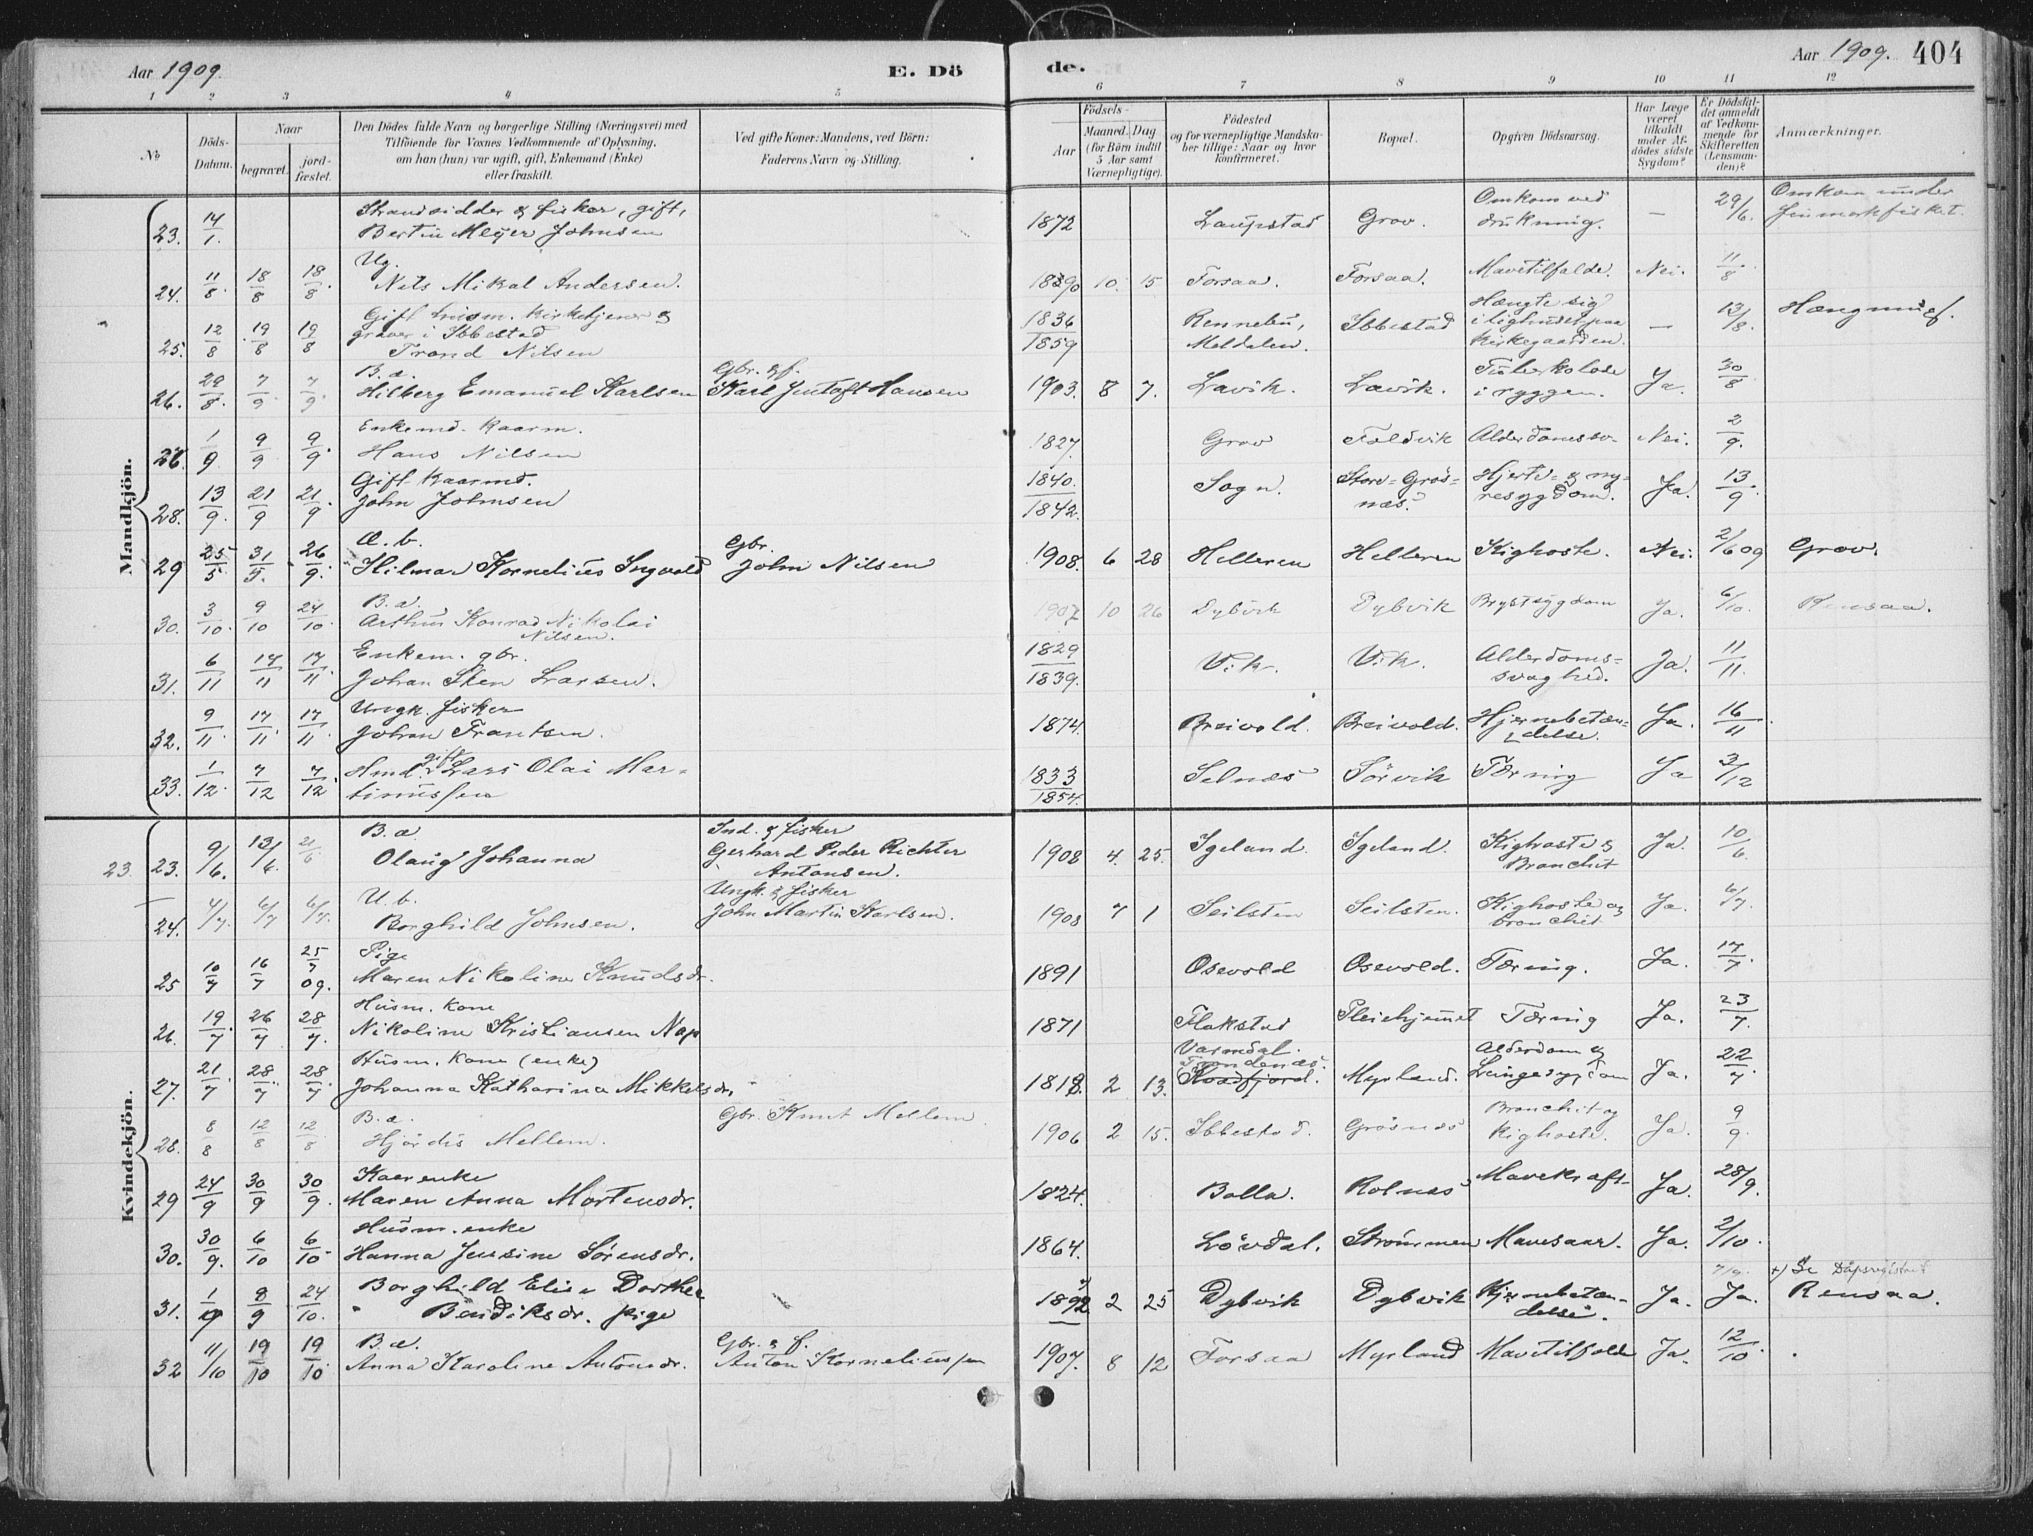 Aar 1909. E. Dö
de. Aar 1909. 404
1 2 3 4 5
6 7 8 9 10 11 12
No
Döds-Datum.
Naar
begravet.
jord-fæstet.
Den Dödes fulde Navn og borgerlige Stilling (Næringsvei) med
Tilföiende for Voxnes Vedkommende af Oplysning,
om han (hun) var ugift, gift, Enkemand (Enke)
eller fraskilt.
Ved gifte Koner: Mandens, ved Börn:
Faderens Navn og Stilling.
Födsels-
Aar
Maaned. Dag
(for Börn indtil
5 Aar samt
Værnepligtige).
Födested
og for værnepligtige Mandska-
ber tillige: Naar og hvor
konfirmeret.
Bopæl.
Opgiven Dödsaarsag.
Har Læge
været
tilkaldt
under Af-
dödes sidste
Sygdom?
Er Dödsfal-
det anmeldt
af Vedkom-
mende for
Skifteretten
(Lensman-
den)?
Anmærkninger.
Mandkjön.
23. 14/1. Strandsidder & fisker, gift, Bertin Meyer Johnsen 1872 Laupstad Grov. Omkom ved drukning. — 29/6. Omkom under Finmarkfisket
24. 11/8. 18/8 18/8. Ug. Nils Mikal Andersen. 10. 15 Forsaa. Forsaa. Mavetilfælde. Nei. 11/8.
25. 12/8 19/8 19/8 Gift kirketjener & graver i Ibbestad Trond Nilsen 1836/1859 Rennebu, Meldalen. Ibbestad Hængte sig i lighuset paa kirkegaarden. — 13/8.
26. 29/8. 7/9 7/9. B. a. Hilberg Emanuel Karlsen Gbr. & f. Karl Gustaft Hansen 1903. 8 7. Lavik. Lavik. Tuberkolose i ryggen. Ja. 30/8
1/9 9/9 9/9. Enkemd. Kaarm. Hans Nilsen 1827. Grov Foldvik Nei. 2/9.
28. 13/9. 21/9 21/9. Gift Kaarmd. John Johnsen 1840./1842. Sogn. Store-Grös-næs. Hjerte- & ny-resygdom. Ja. 13/9.
29 25/5. 31/5. 26/9. Æ. b. Hilmar Kornelius Ingvald Gbr. John Nilsen 1908. 6 28 Helleren Helleren Kighoste. Nei. 2/6 09 Grov.
30. 3/10. 9/10 24/10. B. a. Arthur Konrad Nikolai Nilsen. 1907 10 26 Dybvik Dybvik Brystsygdom Ja. 6/10. Rensaa.
31. 6/11 17/11 17/11. Enkem. gbr. Johan Sten Larsen. 1829/1839. Vik. Vik. Alderdoms-svaghed. Ja. 11/11.
32. 9/11. 17/11. 17/11. Ungk. fisker Johan Frantsen. 1874. Breivold. Breivold. Hjernebetæn-delse. Ja. 16/11
33. 1/12. 7/12 7/12. Hmd. gift Lars Olai Mar-tinussen 1833/1854. Selnæs Sörvik Tæring Ja 3/12
Kvindekjön.
23. 23. 9/6. 13/6. 21/6 B. æ. Olaug Johanna Ind. & fisker Gerhard Peder Richter Antonsen. 1908 4. 25. Igeland. Igeland. Kighoste & Bronchit Ja. 10/6.
24. 4/7. 6/7 6/7. U. b. Borghild Johnsen. Ungk. & fisker John Martin Karlsen. 1908 7 1 Seilsten Seilsten. Kighoste og bronchit Ja. 6/7.
25 10/7 16/7 25/7 09. Pige Maren Nikoline Knudsdr. 1891 Osevold Osevold. Tæring. Ja. 17/7.
26. 19/7. 26/7 28/7. Husm. kone Nikoline Kristiansen Nap 1871 Flakstad Pleiehjemet Tæring Ja. 23/7.
27. 21/7 28/7. 28/7 Husm. kone (enke) Johanna Katharina Mikkelsdr. 1818. 2 13. Trondenæs. Myrland. Alderdom & Lungesygdom Ja. 22/7.
28. 8/8 12/8 12/8 B. æ. Hjördis Mellem. Gbr. Knut Mellem. 1906 2 15. Ibbestad. Grösnæs Bronchit og Kighoste. Ja. 9/9.
29 24/9 30/9 30/9. Kaarenke Maren Anna Mortensdr. 1824. Bolla. Rolnæs Mavekræft. Ja. 28/9.
30. 30/9. 6/10 6/10. Husm. enke Hanna Jensine Sörensdr. 1864. Lövdal. Strömmen Mavesaar. Ja. 2/10.
31. 1/9 8/9 24/10. Borghild Elise Dorthea Bendiksdr. pige 2 25 Dybvik Dybvik Hjernebetæn-delse. Ja. Ja. +) Se Dåpsregisteret Rensaa.
32 11/10 19/10 19/10 B. æ. Anna Karoline Antonsdr. Gbr. & f. Anton Korneliussen 1907. 8 12 Forsaa Myrland Mavetilfælde Ja. 12/10.